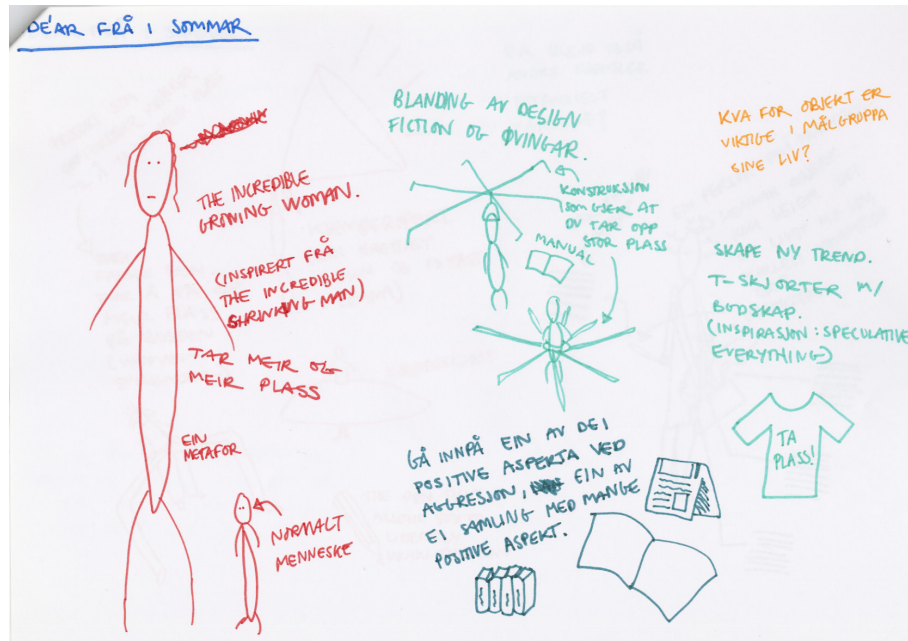 DÉAR FRÅ I SOMMAR
THE INCREDIBLE
GROWING WOMAN.
(INSPIRERT FRÅ
THE INCREDIBLE
SHRINKING MAN)
TAR MEIR OG
MEIR PLASS
EIN
METAFOR
NORMALT
MENNESKE
BLANDING AV DESIGN
FICTION OG ØVINGAR.
KONSTRUKSJON
SOM GJER AT
DU TAR OPP
STOR PLASS
MANUAL
GÅ INNPÅ EIN AV DEI
POSITIVE ASPEKTA VED
AGGRESJON, EIN AV
EI SAMLING MED MANGE
POSITIVE ASPEKT.
KVA FOR OBJEKT ER
VIKTIGE I MÅLGRUPPA
SINE LIV?
SKAPE NY TREND.
T-SKJORTER M/
BODSKAP.
(INSPIRASJON: SPECULATIVE
EVERYTHING)
TA
PLASS!